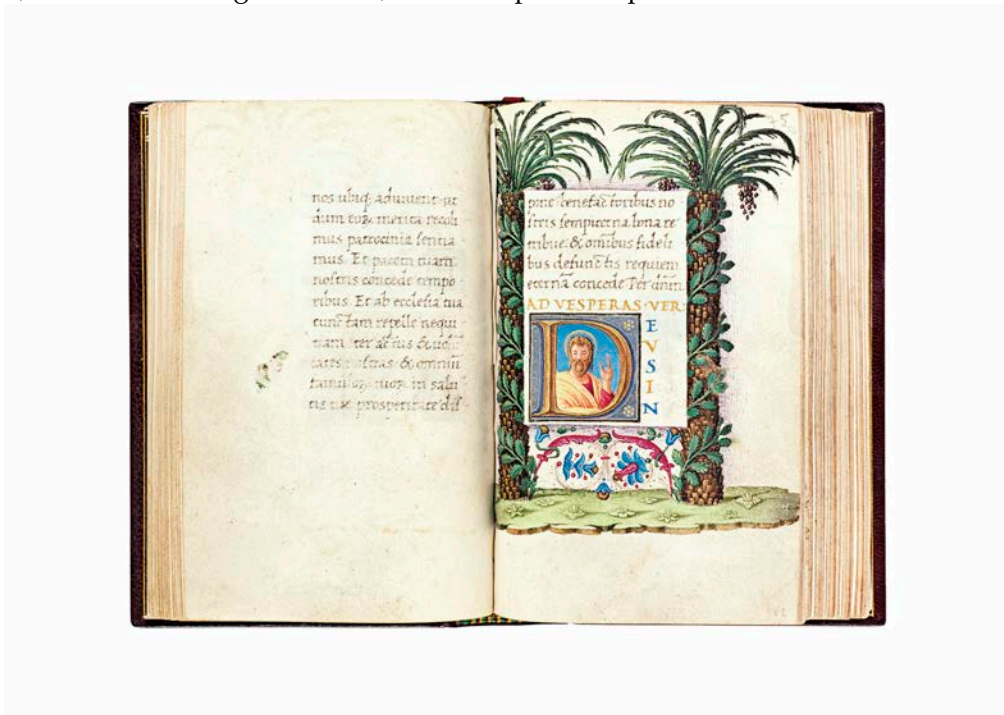 nos ubiq; adiuvent: ut
dum eoꝝ merita recoli
mus patrocinia sentia
mus. Et pacem tuam
nostris concede tempo
ribus. Et ab ecclesia tua
cunctam repelle nequi
tiam
& omniũ
in salu
tis tuę prosperitate dis
75
pone benefac̃toribus no
stris sempiterna bona re
tribue: & omĩbus fideli
bus defunctis requiem
eternã concede Per dñm
AD VESPERAS · VER
DEUS IN